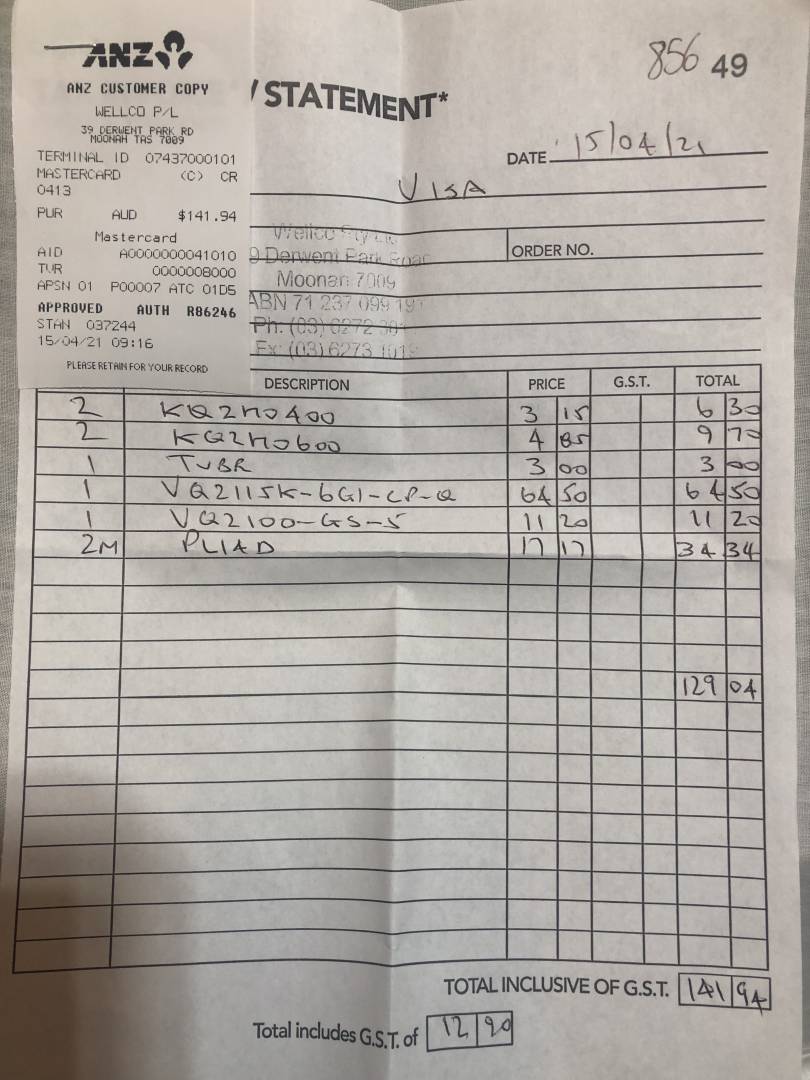 ANZ
ANZ CUSTOMER COPY
WELLCO P/L
39 DERWENT PARK RD
MOONAH TAS 7009
TERMINAL ID 07437000101
MASTERCARD (C) CR
0413
PUR AUD $141.94
Mastercard
AID A0000000041010
TVR 0000008000
APSN 01 P00007 ATC 01D5
APPROVED AUTH R86246
STAN 037244
15/04/21 09:16
PLEASE RETAIN FOR YOUR RECORD
856 49
/ STATEMENT*
DATE 15/04/21
VISA
Wellco Pty
9 Derwent Park Road
ORDER NO.
Moonah 7009
ABN 71 237 099
Ph: (03) 6272
Fx: (03) 6273
DESCRIPTION PRICE G.S.T. TOTAL
2 KQ2H0400 3 15 6 30
2 KQ2H0600 4 85 9 70
1 TUBR 3 00 3 00
1 VQ2115K-6G1-CP-Q 64 50 64 50
1 VQ2100-GS-5 11 20 11 20
2M PL1AD 17 17 34 34
129 04
TOTAL INCLUSIVE OF G.S.T. 141 94
Total includes G.S.T. of 12 90